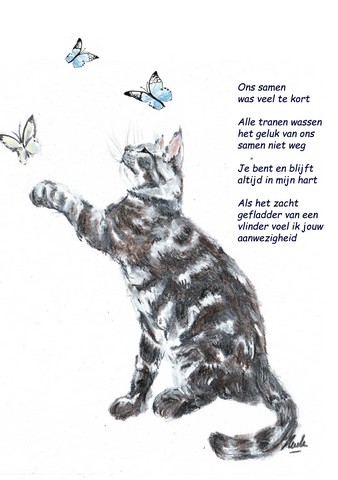 Ons samen
was veel te kort
Alle tranen wassen
het geluk van ons
samen niet weg
Je bent en blijft
altijd in mijn hart
Als het zacht
gefladder van een
vlinder voel ik jouw
aanwezigheid